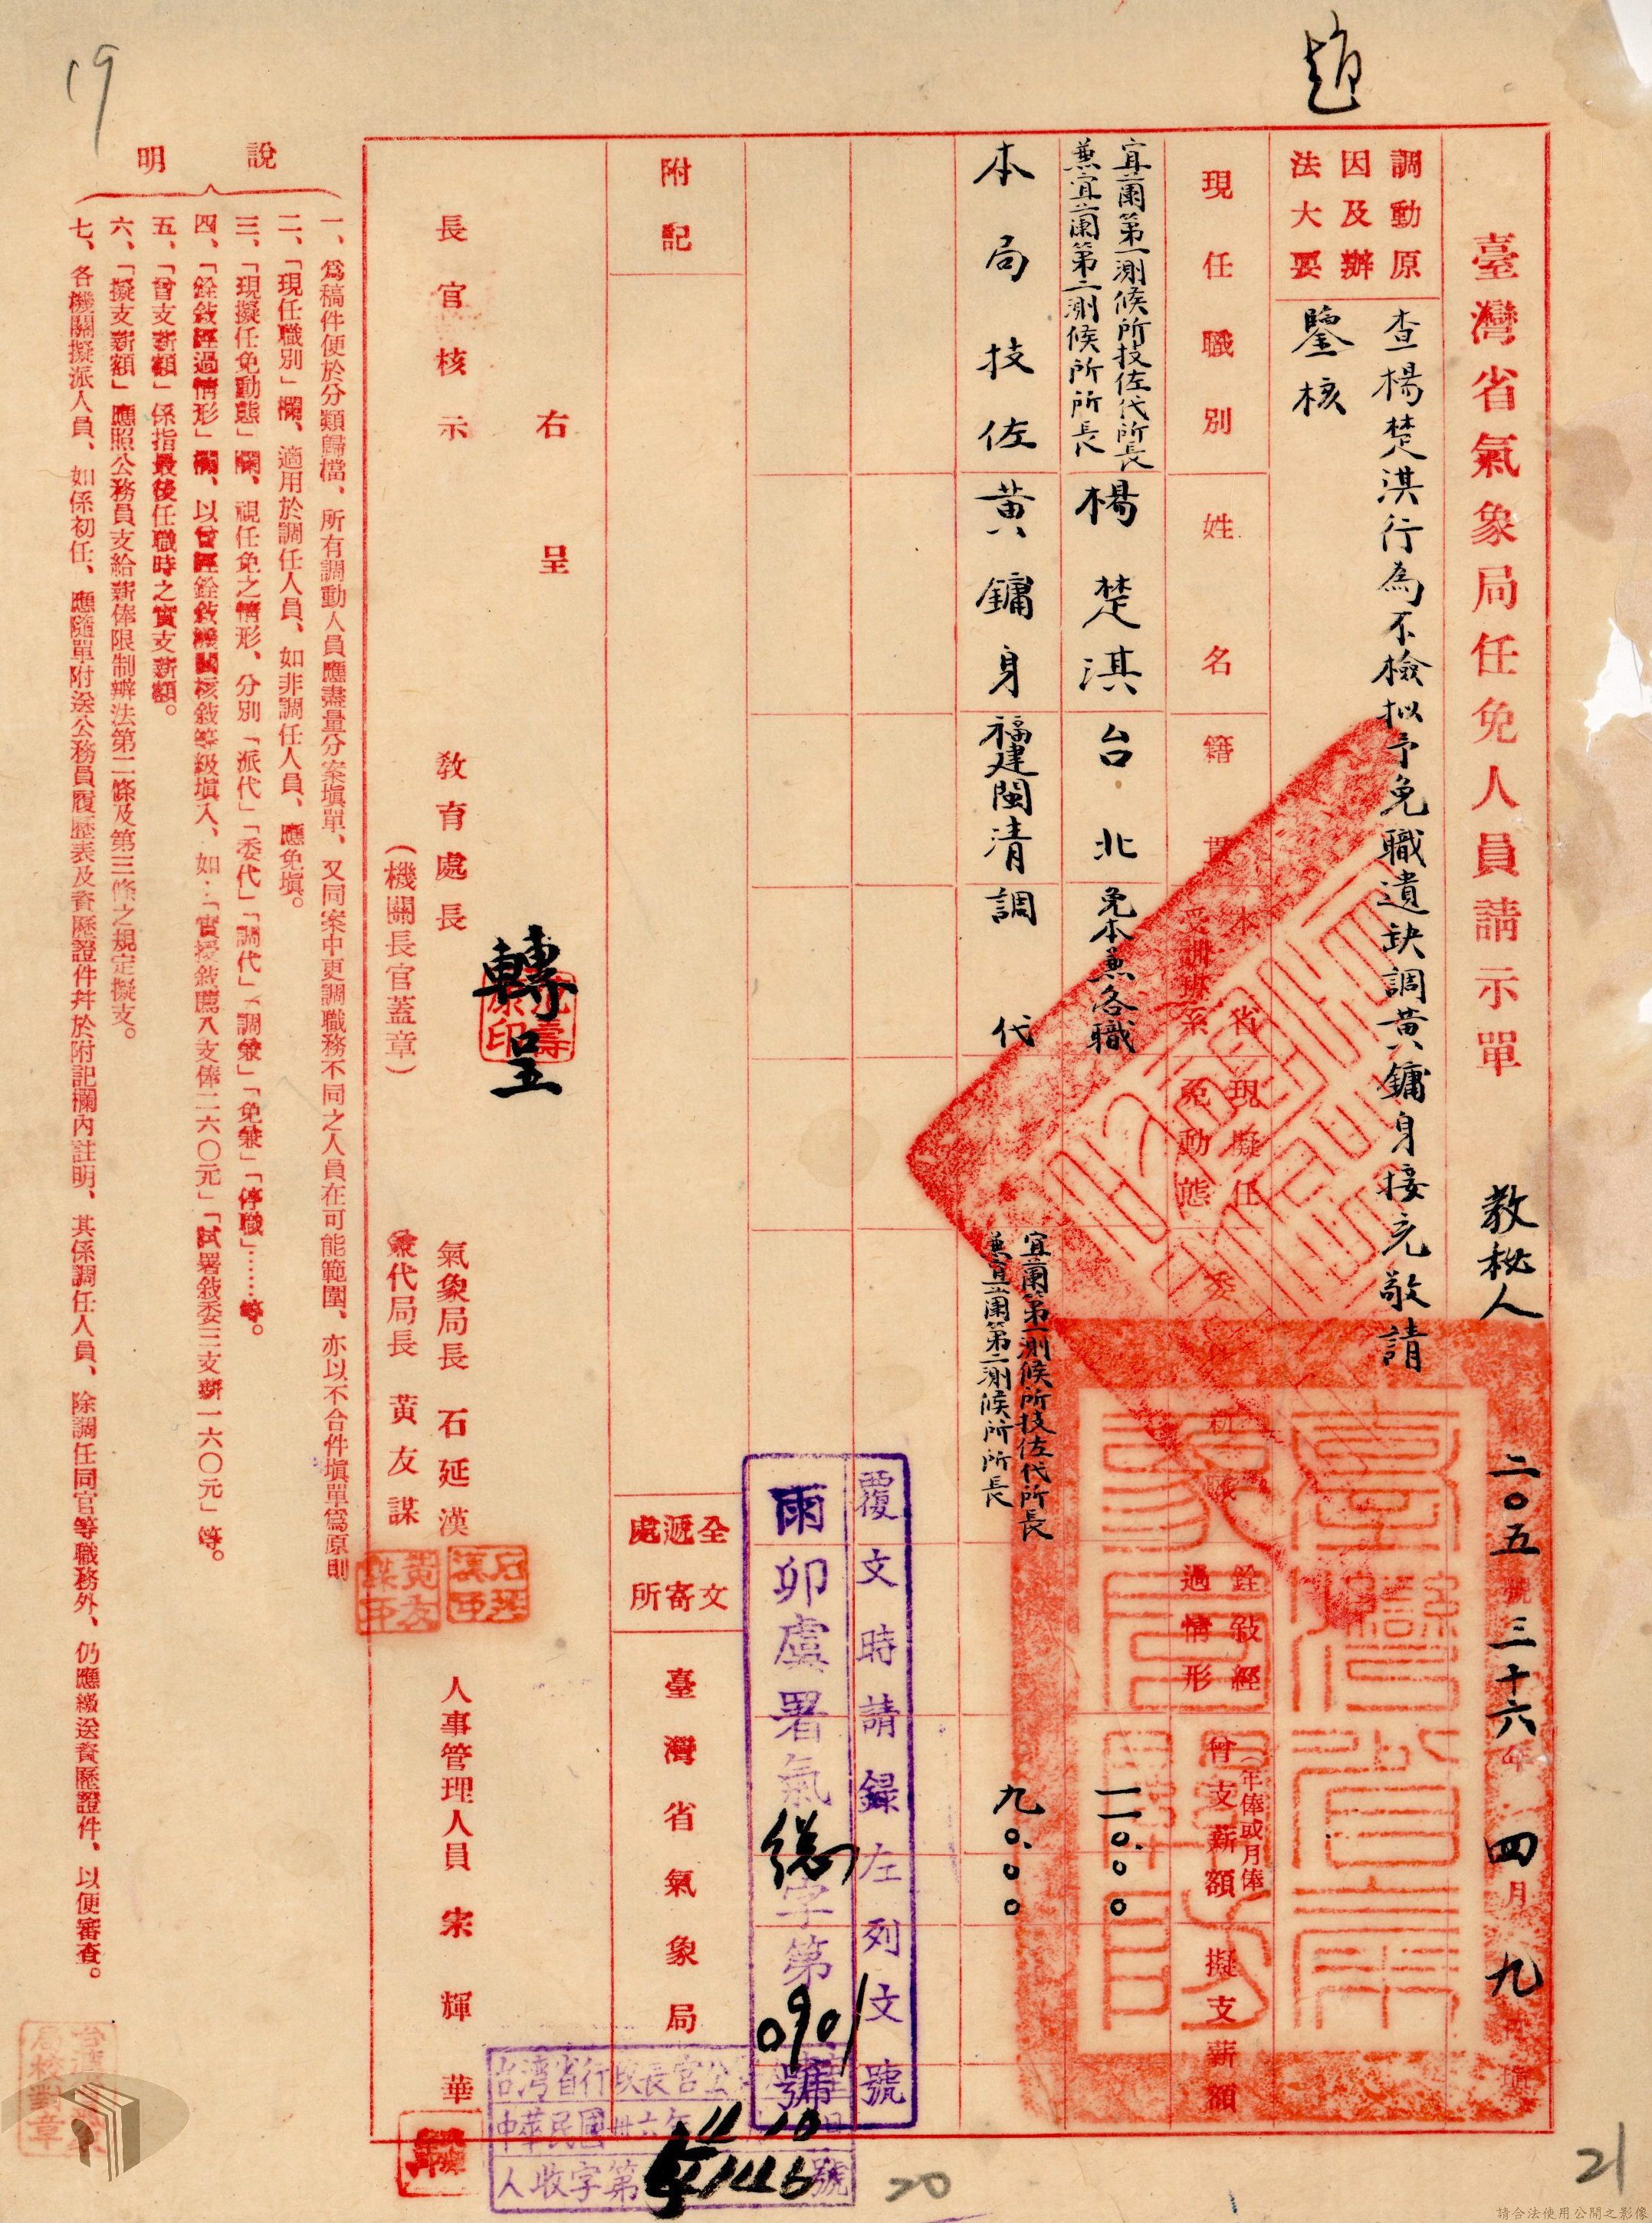 趙
19
臺灣省氣象局任免人員請示單
教秘人
二〇五號三十六年四月九日填
調動原因及辦法大要
查楊楚淇行為不檢拟予免職遺缺調黃鏞身接充敬請
鑒核
現任職別
姓名
籍貫
現擬任免動態
銓敍經過情形
曾支薪額
(年俸或月俸)
擬支薪額
宜蘭第一測候所技佐代所長
兼宜蘭第二測候所所長
楊楚淇
台北
免本兼各職
一一〇.〇〇
本局技佐
黃鏞身
福建閩清
調代
宜蘭第一測候所技佐代所長
兼宜蘭第二測候所所長
九〇.〇〇
覆文時請錄左列文號
雨卯虞署氣總字第0901號
附記
全文遞寄處所
臺灣省氣象局
右呈
轉呈
長官核示
教育處長
(機關長官蓋章)
氣象局長 石延漢
兼代局長 黃友謀
人事管理人員 宋輝華
說明
一、爲稿件便於分類歸檔、所有調動人員應盡量分案塡單、又同案中更調職務不同之人員在可能範圍、亦以不合件塡單爲原則
二、「現任職別」欄、適用於調任人員、如非調任人員、應免塡。
三、「現擬任免動態」欄、視任免之情形、分別「派代」「委代」「調代」「調兼」「免兼」「停職」……等。
四、「銓敍經過情形」欄、以曾經銓敍機關核敍等級塡入、如：「實授敍薦八支俸二六〇元」「試署敍委三支薪一六〇元」等。
五、「曾支薪額」係指最後任職時之實支薪額。
六、「擬支薪額」應照公務員支給薪俸限制辦法第二條及第三條之規定擬支。
七、各機關擬派人員、如係初任、應隨單附送公務員履歷表及資歷證件幷於附記欄內註明、其係調任人員、除調任同官等職務外、仍應繳送資歷證件、以便審查。
台湾省行政長官公
中華民國卅六年4 10日
人收字第 號
20
21
請合法使用公開之影像